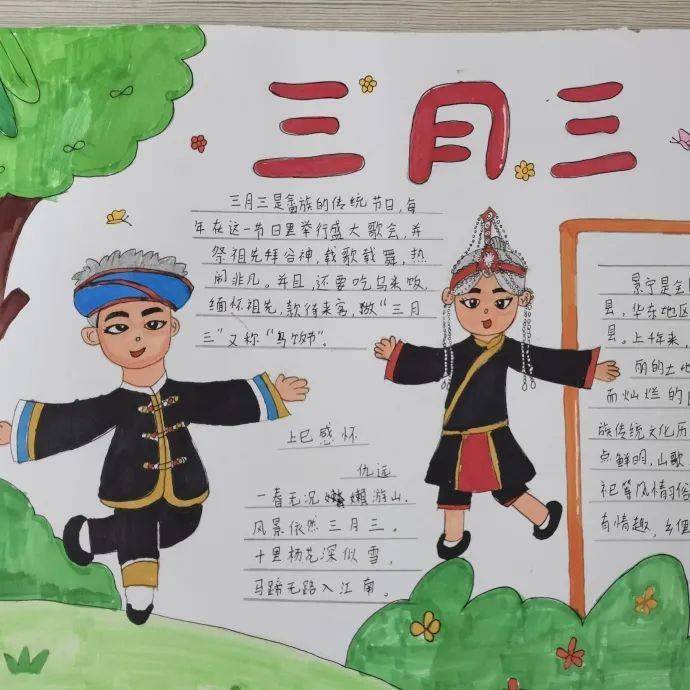 三月三
三月三是畲族的传统节日,每
年在这一节日里举行盛大歌会,并
祭祖先拜谷神,载歌载舞,热
闹非凡。并且,还要吃乌米饭,
缅怀祖先,款待来客,故"三月
三"又称"乌饭节"。
上巳感怀
仇远
一春无况懒游山,
风景依然三月三。
十里杨花深似雪,
马蹄无路入江南。
景宁是全
县,华东地区
县。上千年来,
丽的土地
而灿烂的
族传统文化历
点鲜明,山歌
祀等风情俗
有情趣,乡俚